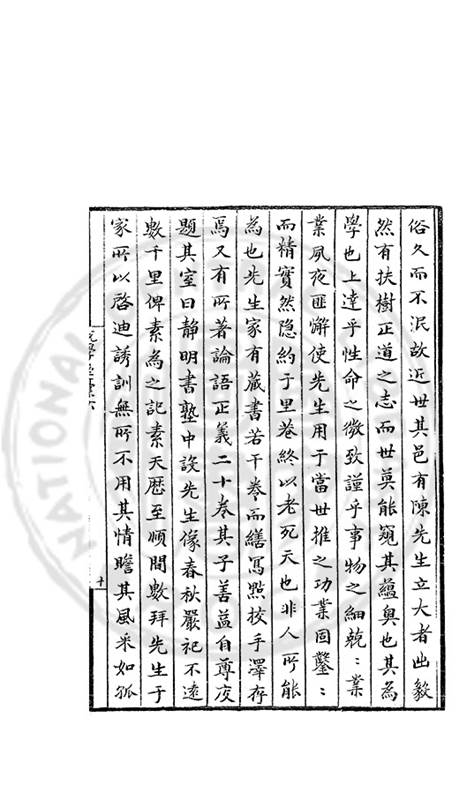 俗久而不泯故近世其邑有陳先生立大者出毅
然有扶樹正道之志而世莫能窺其蘊奧也其為
學也上達乎性命之微致謹乎事物之細兢:業
業夙夜匪懈使先生用于當世推之功業固鑿:
而精實然隐約于里巷終以老死天也非人所能
為也先生家有蔵書若干卷而繕寫點校手澤存
焉又有所著論語正義二十卷其子善益自尊度
題其室曰静明書塾中設先生像春秋嚴祀不逺
數千里俾素為之記素天厯至順間數拜先生于
家所以啓迪誘訓無所不用其情瞻其風采如孤
十
NATIONAL